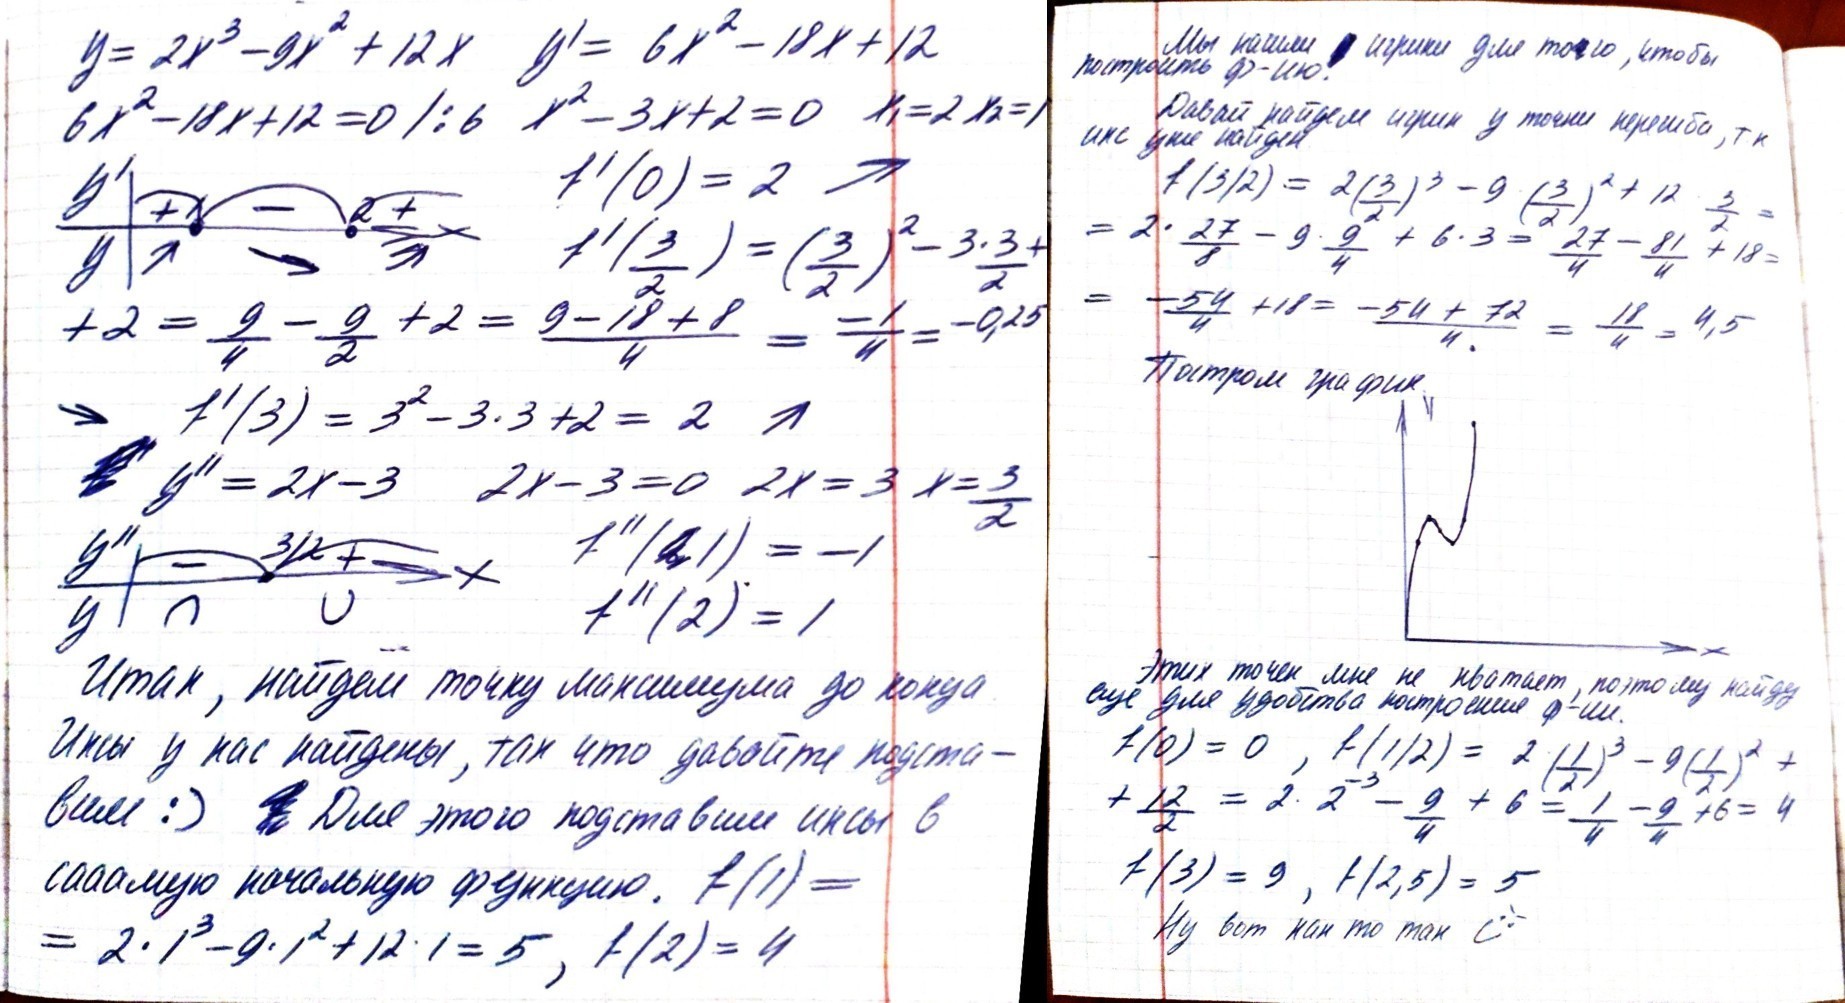 y = 2x³ - 9x² + 12x y' = 6x² - 18x + 12
6x² - 18x + 12 = 0 /:6 x² - 3x + 2 = 0 x₁ = 2 x₂ = 1
y' + 1 - 2 + x
y
f'(0) = 2 ↗
f'(3/2) = (3/2)² - 3·3/2 +
+ 2 = 9/4 - 9/2 + 2 = (9 - 18 + 8)/4 = -1/4 = -0,25
↘ f'(3) = 3² - 3·3 + 2 = 2 ↗
y'' = 2x - 3 2x - 3 = 0 2x = 3 x = 3/2
y'' - 3/2 + x
y ∩ ∪
f''(1) = -1
f''(2) = 1
Итак, найдем точку максимума до конца.
Иксы у нас найдены, так что давайте подста-
вим :) Для этого подставим иксы в
сааамую начальную функцию. f(1) =
= 2·1³ - 9·1² + 12·1 = 5, f(2) = 4
Мы нашли игрики для того, чтобы
построить ф-ию.
Давай найдем игрик у точки перегиба, тк
икс уже найден.
f(3/2) = 2(3/2)³ - 9·(3/2)² + 12·3/2 =
= 2·27/8 - 9·9/4 + 6·3 = 27/4 - 81/4 + 18 =
= -54/4 + 18 = (-54 + 72)/4 = 18/4 = 4,5
Построим график.
y
x
Этих точек мне не хватает, поэтому найду
еще для удобства построения ф-ии.
f(0) = 0, f(1/2) = 2·(1/2)³ - 9(1/2)² +
+ 12/2 = 2·2⁻³ - 9/4 + 6 = 1/4 - 9/4 + 6 = 4
f(3) = 9, f(2,5) = 5
Ну вот как то так